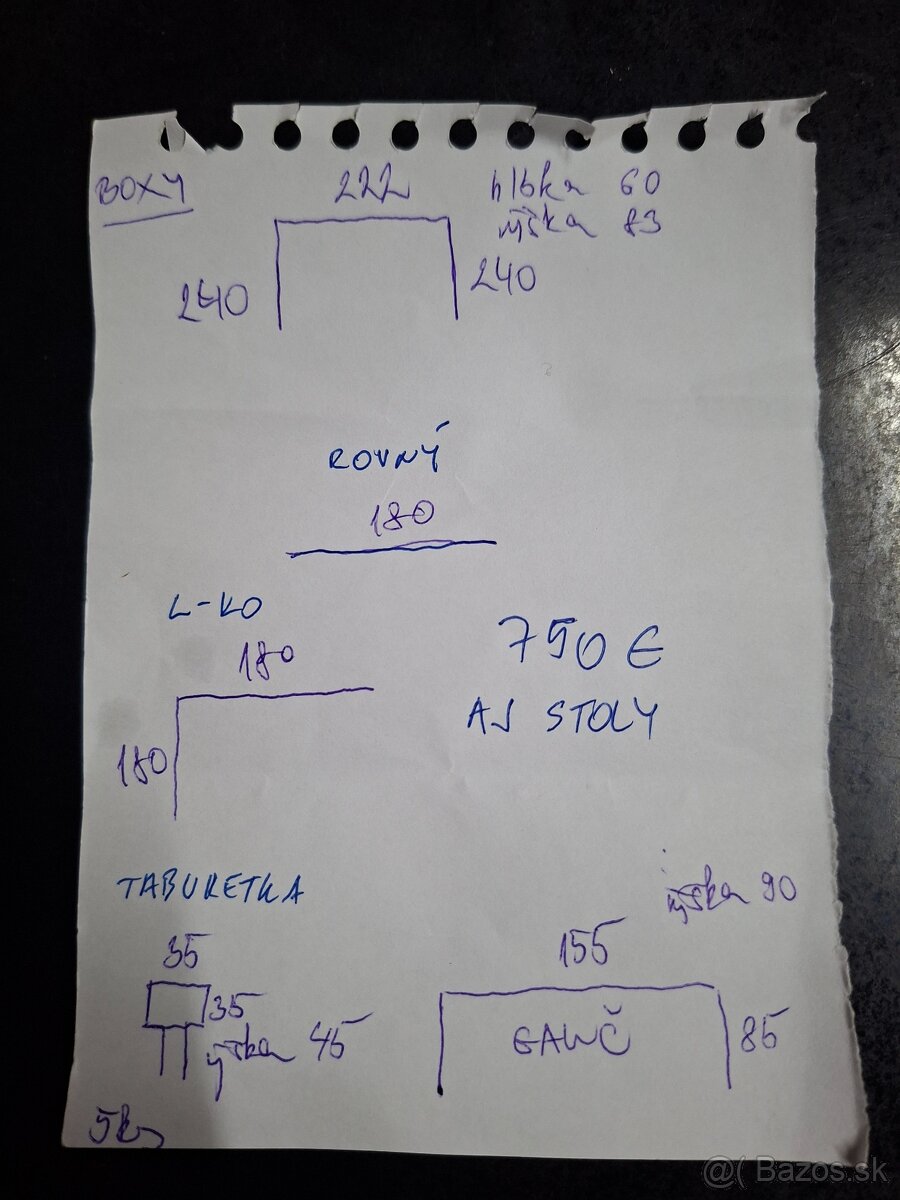 BOXY
222
hĺbka 60
výška 83
240
240
ROVNÝ
180
L-KO
180
180
750 €
AJ STOLY
TABURETKA
35
35
výška 45
5ks
výška 90
155
GAUČ
85
@( Bazos.sk